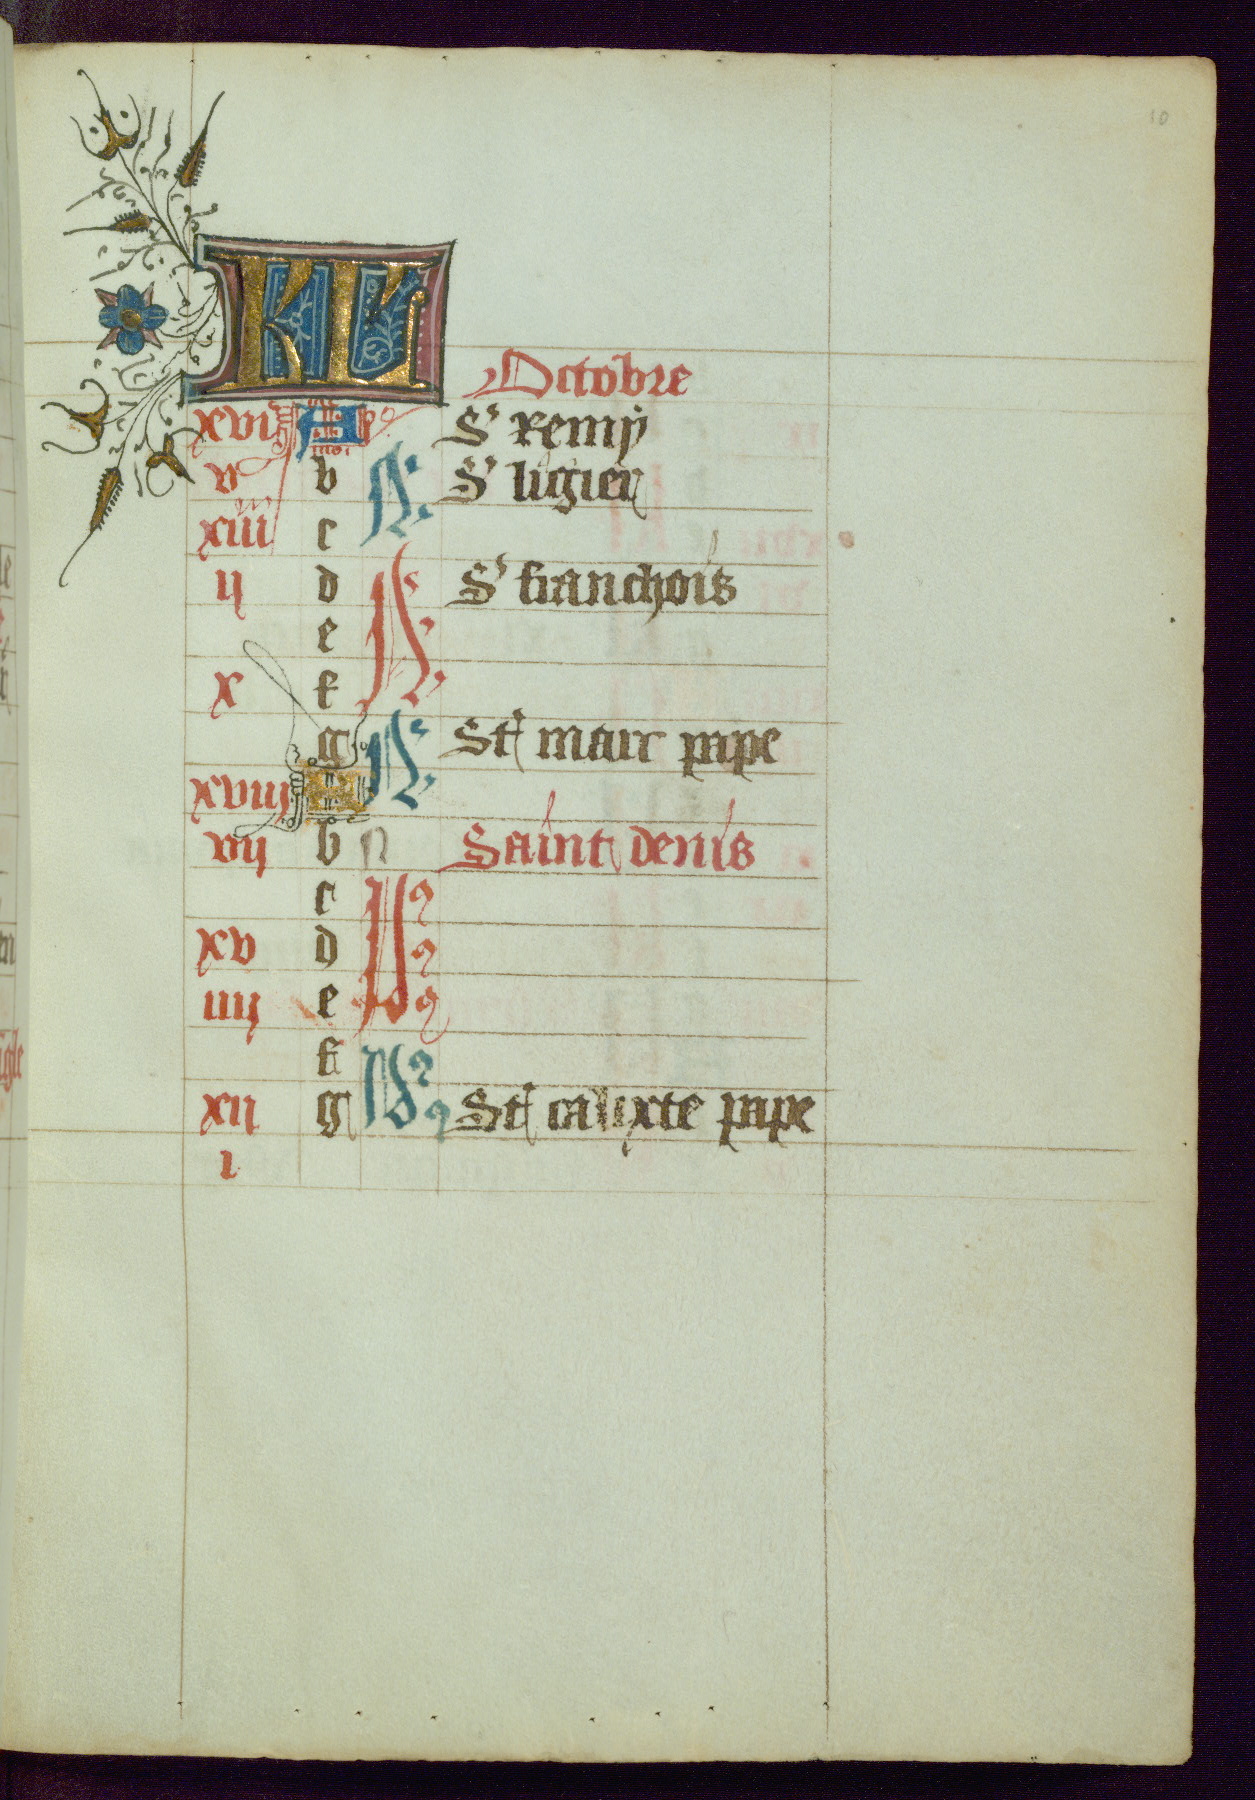 10
KL
Octobre
xvi A No Sᵗ remy
v b N. Sᵗ ligier
xiii c
ii d N. Sᵗ franchois
e
x f
g N. St marc pape
xviii A
vii b n Saint denis
c N
xv d
iiii e
f N
xii g St calixte pape
i